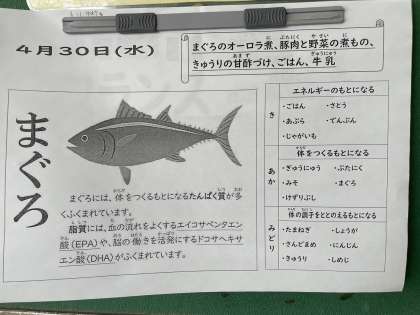 4月30日(水)
まぐろのオーロラ煮、豚肉と野菜の煮もの、
きゅうりの甘酢づけ、ごはん、牛乳
まぐろ
まぐろには、体をつくるもとになるたんぱく質が多
くふくまれています。
脂質には、血の流れをよくするエイコサペンタエン
酸(EPA)や、脳の働きを活発にするドコサヘキサ
エン酸(DHA)がふくまれています。
き
エネルギーのもとになる
・ごはん ・さとう
・あぶら ・でんぷん
・じゃがいも
あか
体をつくるもとになる
・ぎゅうにゅう ・ぶたにく
・みそ ・まぐろ
・けずりぶし
みどり
体の調子をととのえるもとになる
・たまねぎ ・しょうが
・さんどまめ ・にんじん
・きゅうり ・しめじ